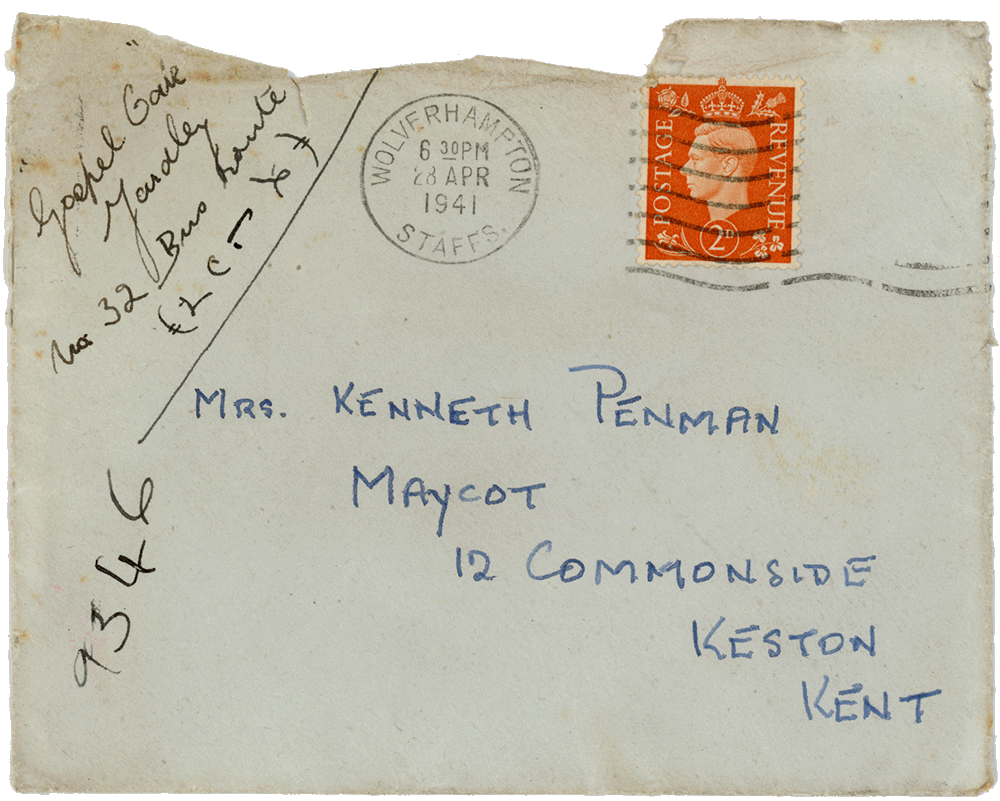 "Gospel Oak"
Yardley
No. 32 Bus route
9346
WOLVERHAMPTON
6 30PM
28 APR
1941
STAFFS.
POSTAGE
REVENUE
2D
MRS. KENNETH PENMAN
MAYCOT
12 COMMONSIDE
KESTON
KENT